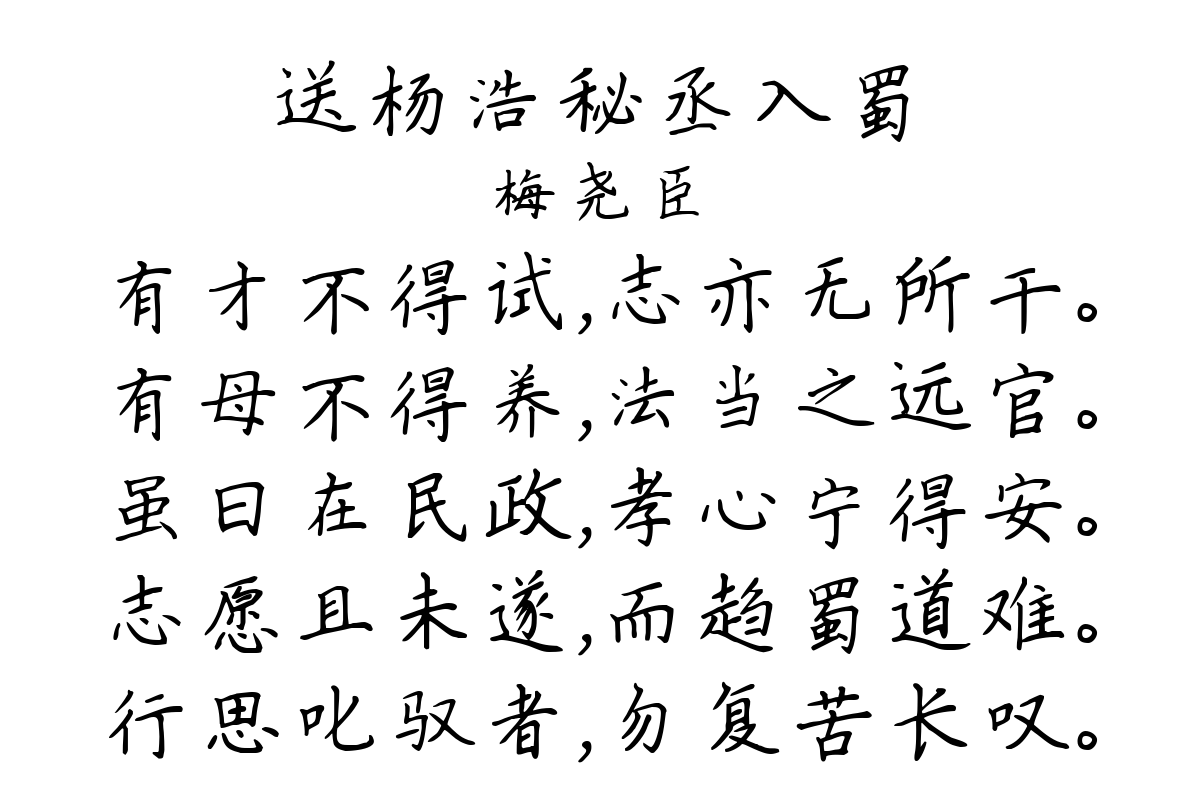 送杨浩秘丞入蜀
梅尧臣
有才不得试,志亦无所干。
有母不得养,法当之远官。
虽曰在民政,孝心宁得安。
志愿且未遂,而趋蜀道难。
行思叱驭者,勿复苦长叹。